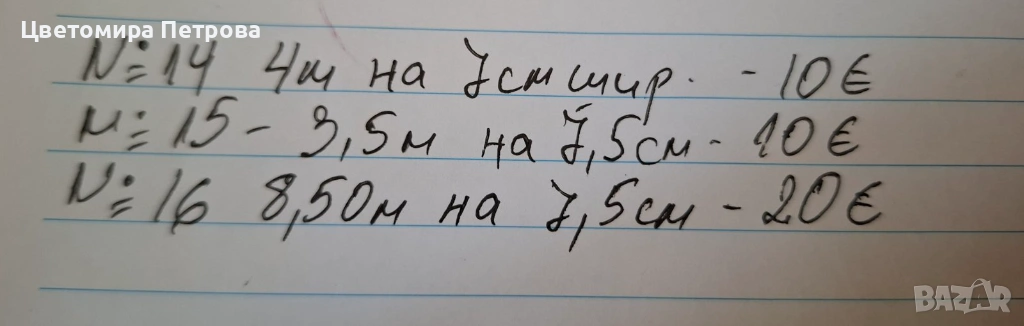 Цветомира Петрова
№ 14 4м на 7см шир. - 10 €
№ 15 - 3,5м на 7,5см - 10 €
№ 16 8,50м на 7,5см - 20 €
BAZAR